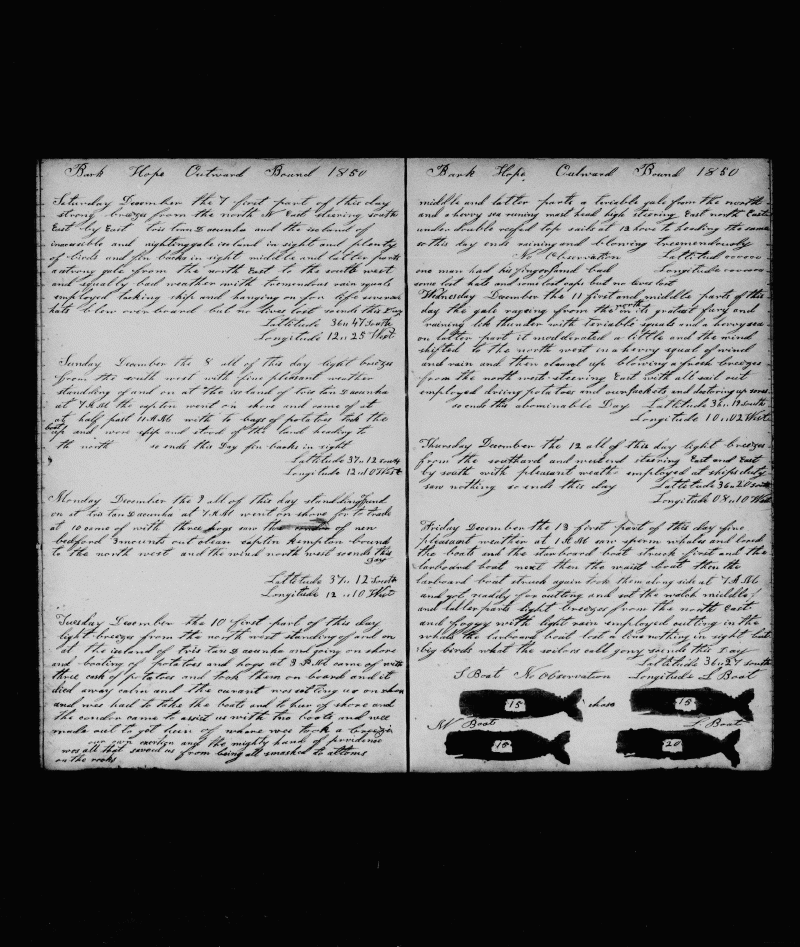 Bark Hope Outward Bound 1850
Saturday December the 7 first part of this day
strong breezes from the north East steering south
East by East tois tan D acunha and the iseland of
inacesible and nightingale iseland in sight and plenty
of birds and fin backs in sight middle and latter parts
a strong gale from the north East to the south west
and squaly bad weather with tremendous rain squals
employed taking ship and hanging on for life severeal
hats blew over board but no lives lost so ends this Day
Lattitude 36 " 47 South
Longitude 12 " 25 West
Sunday December the 8 all of this day light breezes
from the south west with fine pleasant weather
standding of and on at the iseland of tois tan D acunha
at 7 A M the captin went on shore and came of at
at half past 11 A M with 10 bags of potatoes took the
boats
up and wore ship and stood of the land heading to
the north so ends this Day fin backs in sight
Lattitude 37 " 12 South
Longitude 12 " 10 West
Monday December the 9 all of this day standding of and
on at tois tan D acunha at 7 A M went on shore for to trade
at 10 came of with three hogs saw the of new
bedford 3 mounts out clean captin Kempton bound
to the north west and the wind north west so ends this
Day
Lattitude 37 " 12 South
Longitude 12 " 10 West
Tuesday December the 10 first part of this day
light breezes from the north west standding of and on
at the iseland of tris tan D acunha and going on shore
and boating of potatoes and hogs at 3 P M came of with
three cask of potatoes and took them on board and it
died away calm and the curant was setting us on shore
and we was had to take the boats and to tow of shore and
the condor came to assist us with two boats and wee
made out to get of where wee took a
our own exertion and the mighty hand of providence
was all that saved us from being all smashed to attoms
on the rocks
Bark Hope Outward Bound 1850
middle and latter parts a teriable gale from the north
and a hervy sea runing mast head high steering East north East
under double reefed top sails at 12 hove to heading the same
so this day ends raining and blowing treemendously
No Observation Lattitude 000000
one man had his finger jamed bad Longitude 000000
some lost hats and some lost caps but no lives lost
Wednesday December the 11 first and middle parts of this
day the gale rageing from the north in its gratest fury and
raining like thunder with teriable squals and a hervy sea
on latter part it modderated a little and the wind
shifted to the north west in a hervy squal of wind
and rain and then cleared up blowing a fresh breeze
from the north west steering East with all sail out
employed drieing potatoes and our jackets and shotering up
so ends the abominable Day Lattitude 36 " 19 South
Longitude 10 " 02 West
Thursday December the 12 all of this day light breezes
from the southard and westerd steering East and East
by south with pleasant weath employed at ships duty
saw nothing so ends this day Lattitude 36 " 20 South
Longitude 08 " 10 West
Friday December the 13 first part of this day fine
pleasant weather at 1 A M saw sperm whales and lowed
the boats and the starbord boat struck first and the
larboard boat next then the waist boat then the
larboard boat struck again took them along side at 7 A M
and got readily for cutting and set the watch middle
and latter parts light breezes from the north East
and foggy with light rain employed cutting in the
whale the larboard boat lost a line nothing in sight but
big birds what the sailors call gony so ends this Day
Lattitude 36 " 27 South
S Boat No Observation Longitude L Boat
15
15
W Boat
L Boat
15
20